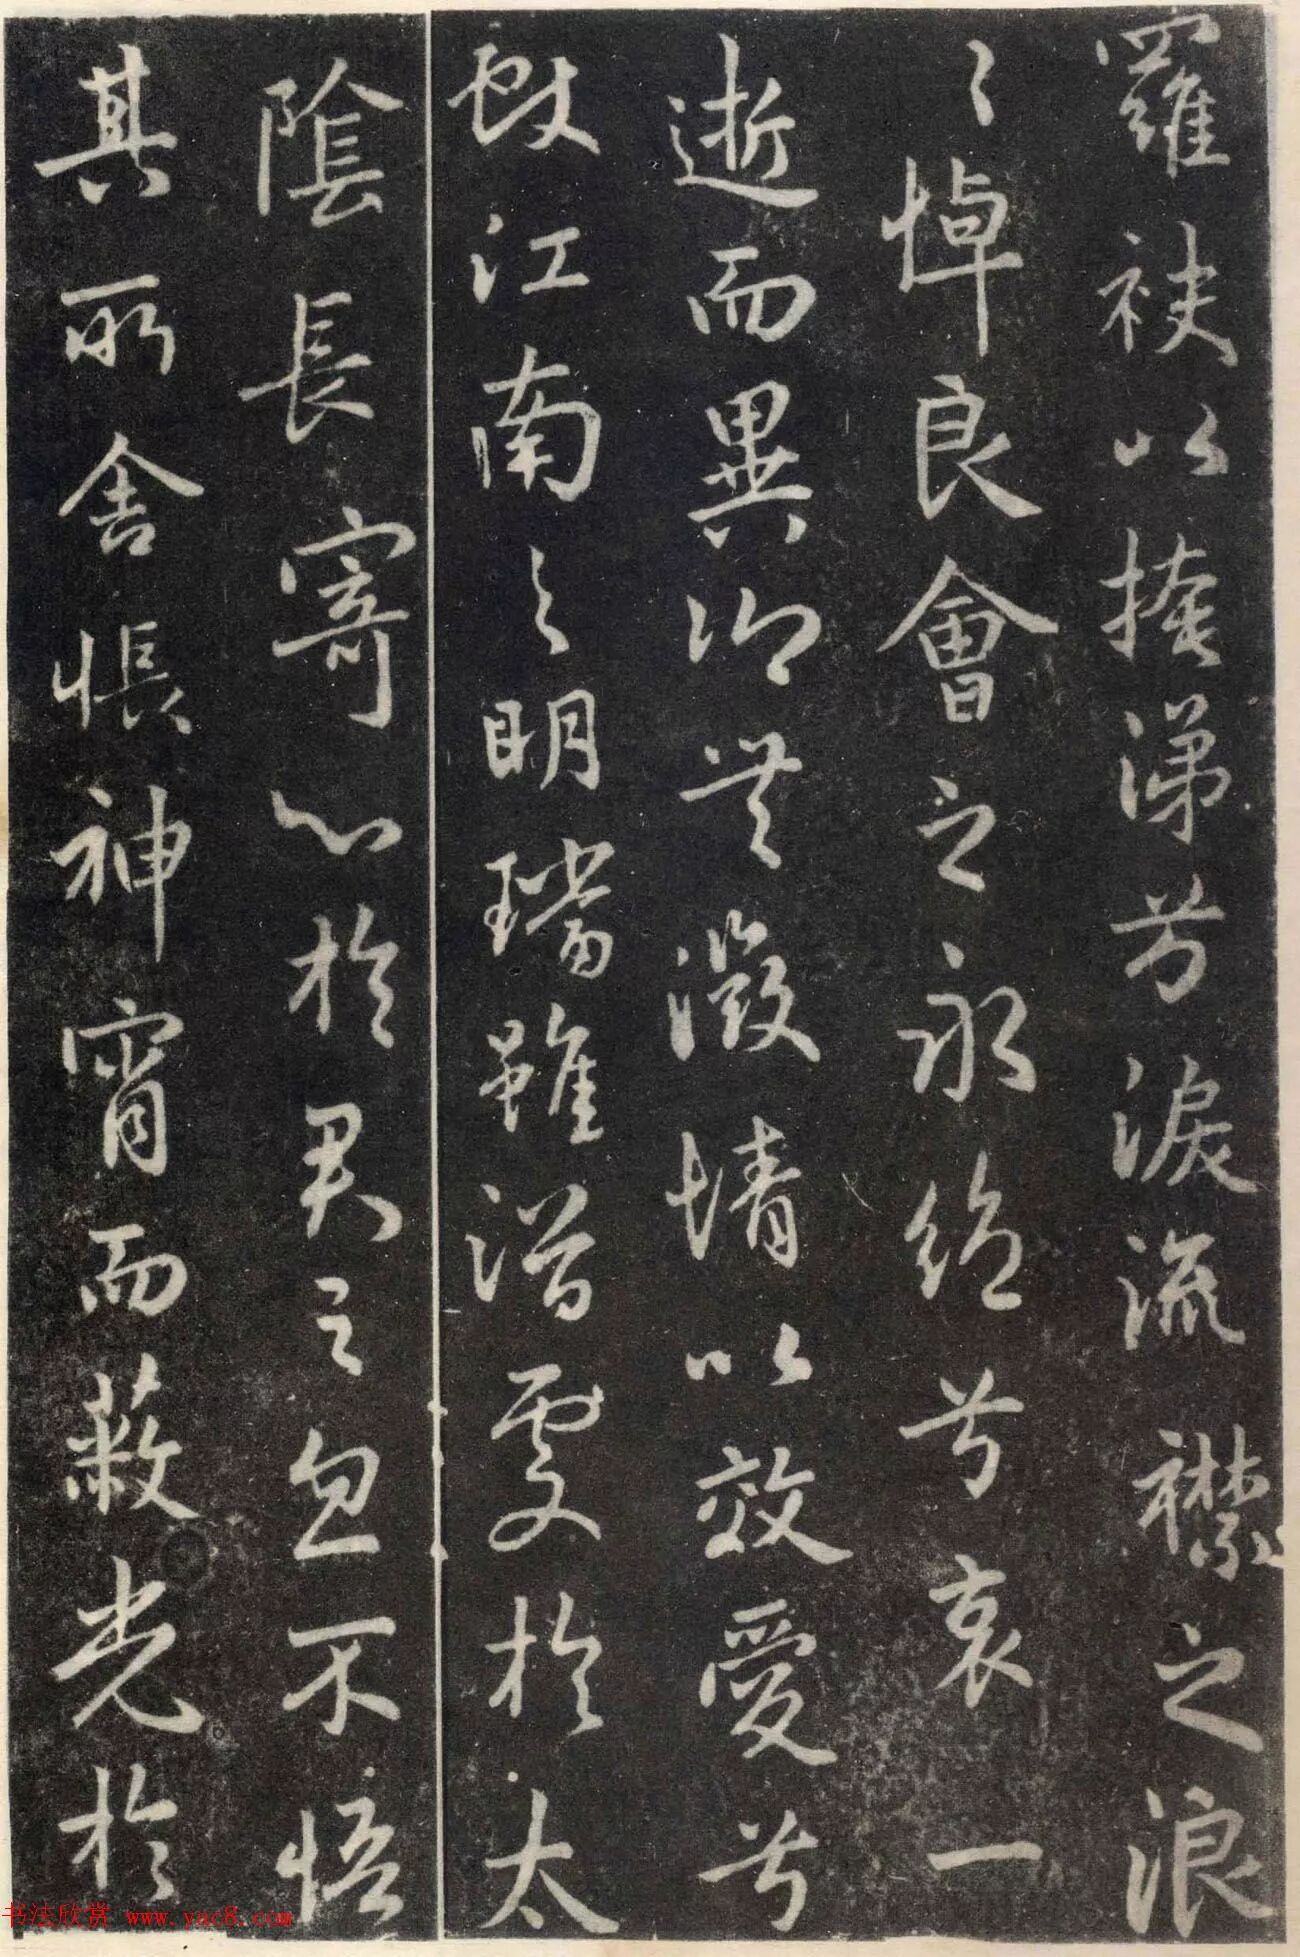 羅袂以掩涕兮淚流襟之浪
〻悼良會之永絕兮哀一
逝而異鄉無微情以效愛兮
獻江南之明璫雖潛處於太
陰長寄心於君王忽不悟
其所舍悵神宵而蔽光於
书法欣赏 www.yac8.com